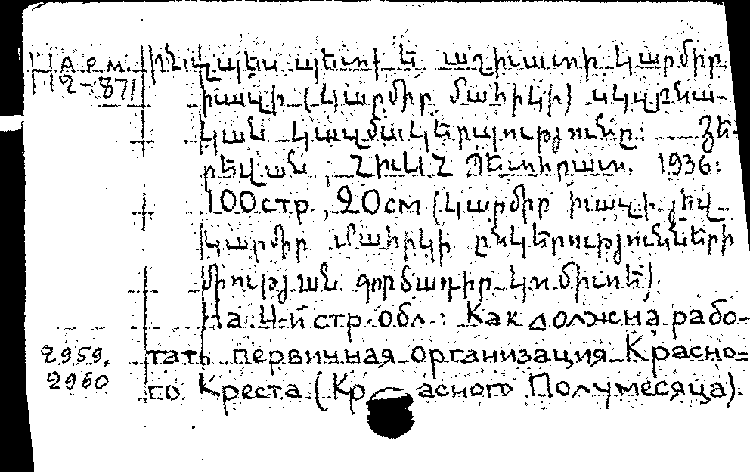 Арм. Ինչպես պետք է աշխատի կարմիր
2-871 խաչի (կարմիր մահիկի) սկզբնա-
կան կազմակերպությունը: Յե-
րեվան, ՀԽԿՀ Պետհրատ. 1936:
100стр., 20см (կարմիր խաչի յեվ
կարմիր մահիկի ընկերությունների
միության գործադիր կոմիտե)
На 4-й стр. обл.: Как должна рабо-
2959, тать первичная организация Красно-
2960 го Креста (Красного Полумесяца).